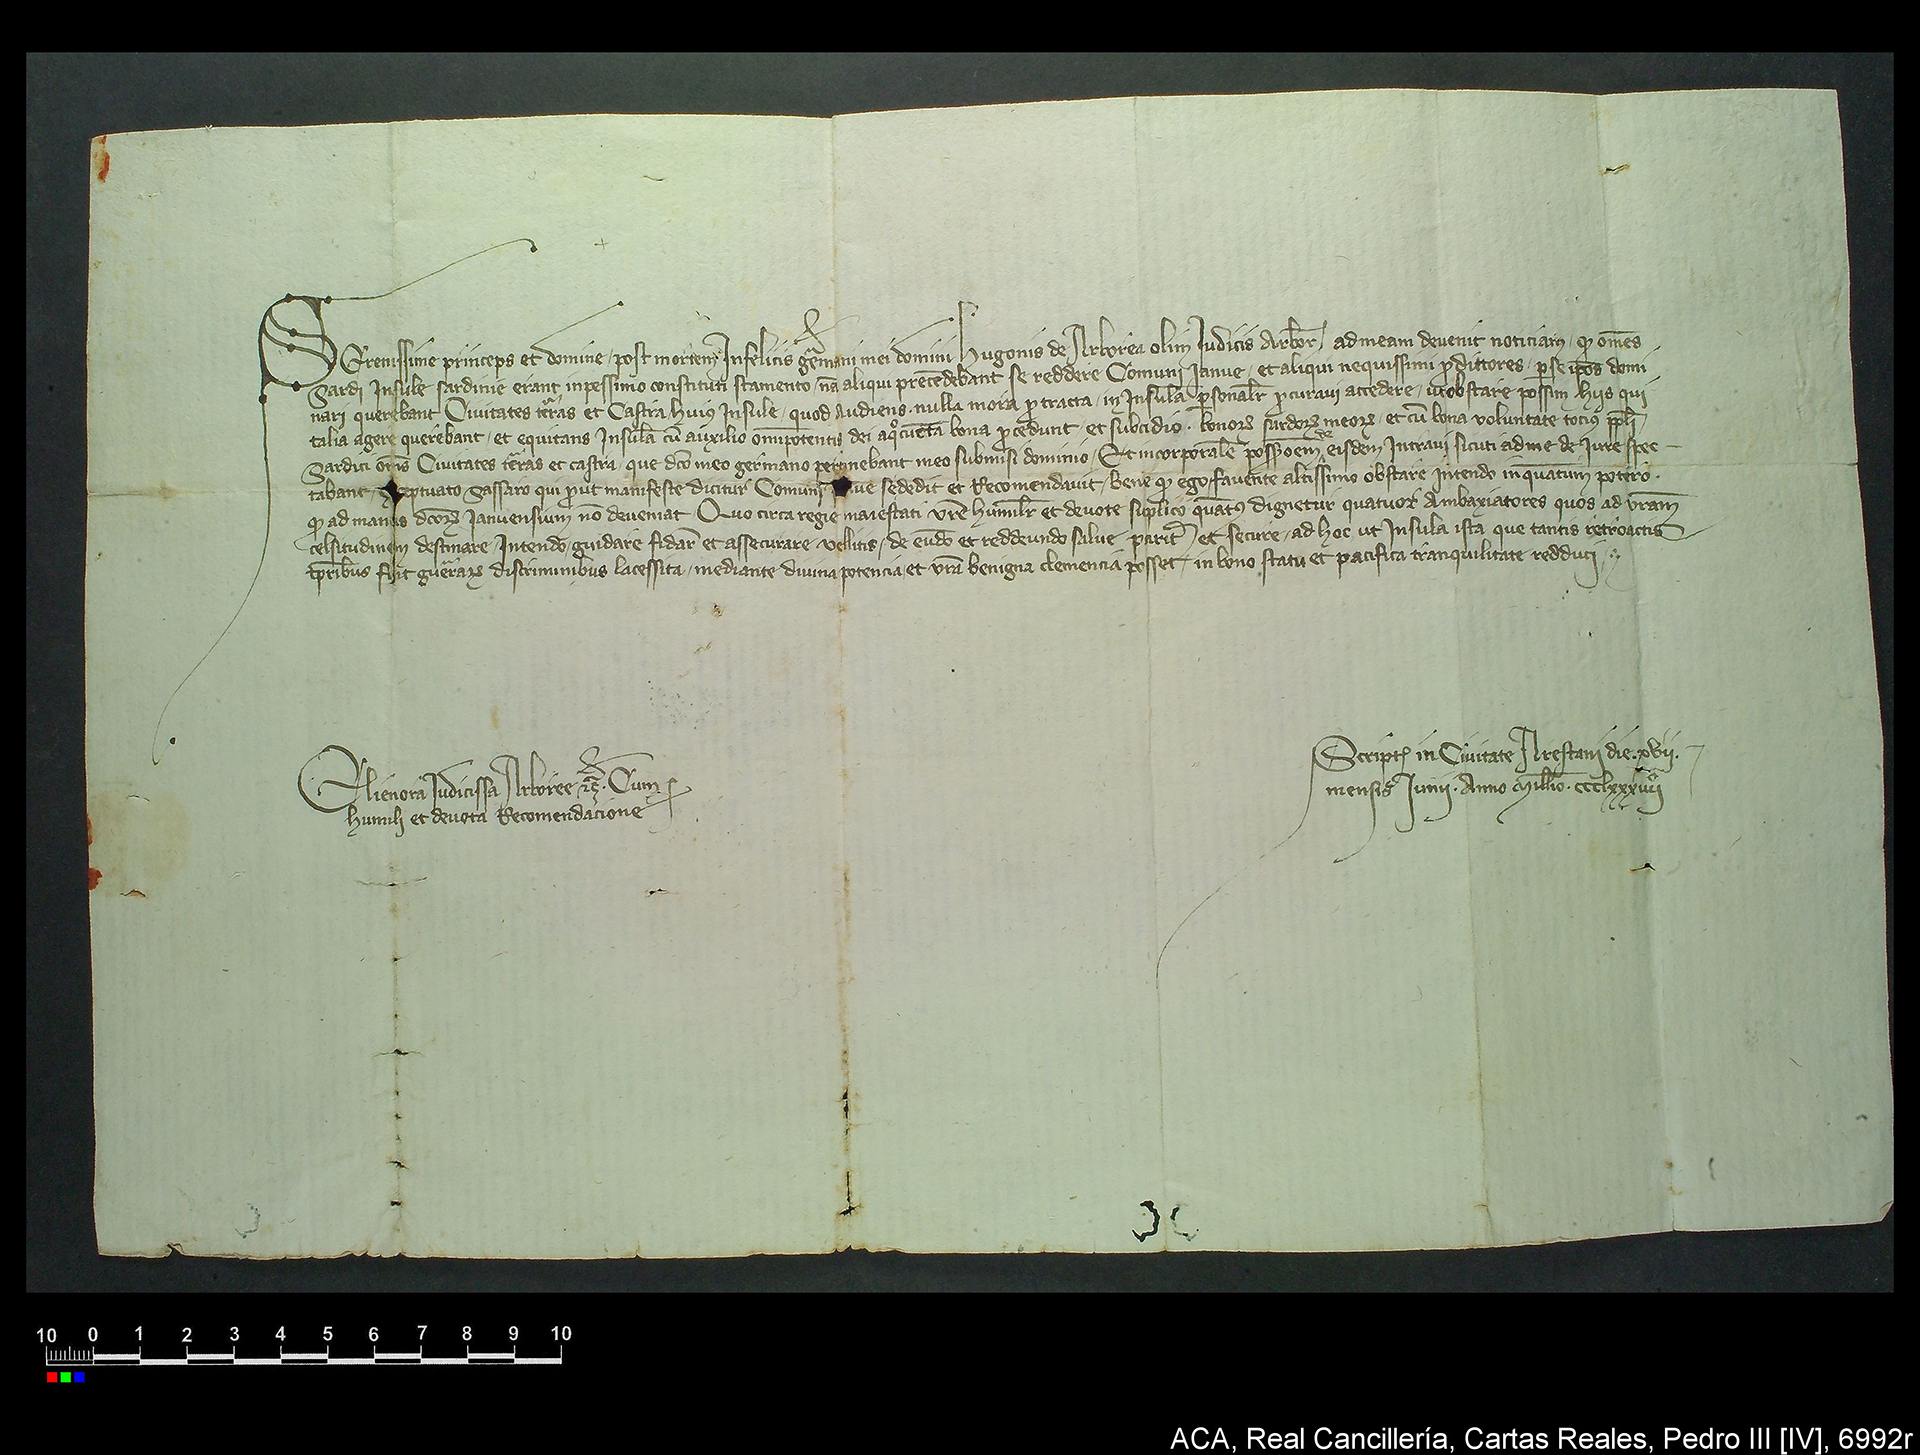 Serenissime princeps et domine post mortem Infelicis g̃mani mei domini Hugonis de Arborea olim Iudicis Arbor̃ ad meam devenit noticiam qꝫ om̃es
Sardi Insule sardinie erant in pessimo constituti stamento nã aliqui pretẽdebant se reddere Comuni Ianue et aliqui nequissimi ꝓdittores ꝑ se ip̃os domi
nari querebant Civitates t̃ras et Castra huiꝰ Insule quod audiens nulla mora ꝓtracta in Insulã ꝑsonalr̃ ꝓcuravi accedere ut obstare possim hijs qui
talia agere querebant et equitans Insulã cũ auxilio om̃ipotentis dei a qͦ cũcta bona ꝓcedunt et subcidio bonoꝝ sardoꝝ meoꝝ et cũ bona voluntate tociꝰ pp̃li
Sardici om̃s Civitates t̃ras et castra que dc̃o meo germano pertinebant meo submisi dominio Et in corporalẽ possẽoem eisdem Intravi sicuti ad me de Iure spec
tabant ptuato Sassaro qui ꝓut manifeste dicitur Comuni ue se dedit et Recomendavit bene qꝫ ego favente altissimo obstare Intendo in quatum potero
qꝫ ad manus dc̃oꝝ Ianuensium nõ deveniat Quo circa regie maiestati vr̃e humilr̃ et devote suplico quatꝰ dignetur quatuor Ambaxiatores quos ad vr̃am
celsitudinem destinare Intendo guidare fidar̃ et assecurare vellitis de eundo et reddeundo salve parit̃ et secure ad hoc ut Insula ista que tantis retroactis
tp̃ribus fuit guer̃aꝝ discriminibus lacessita mediante divina potencia et vr̃a benigna clemencia posset in bono statu et pacifica tranquilitate redduci
Elienora Iudicissa Arboree ⁊c̃. Cum
humili et devota Recomendacione
Script̃ in Civitate Arestani die. xvij.
mensis Iunij. Anno Mill̃io. ccclxxxiij
10 0 1 2 3 4 5 6 7 8 9 10
ACA, Real Cancillería, Cartas Reales, Pedro III [IV], 6992r